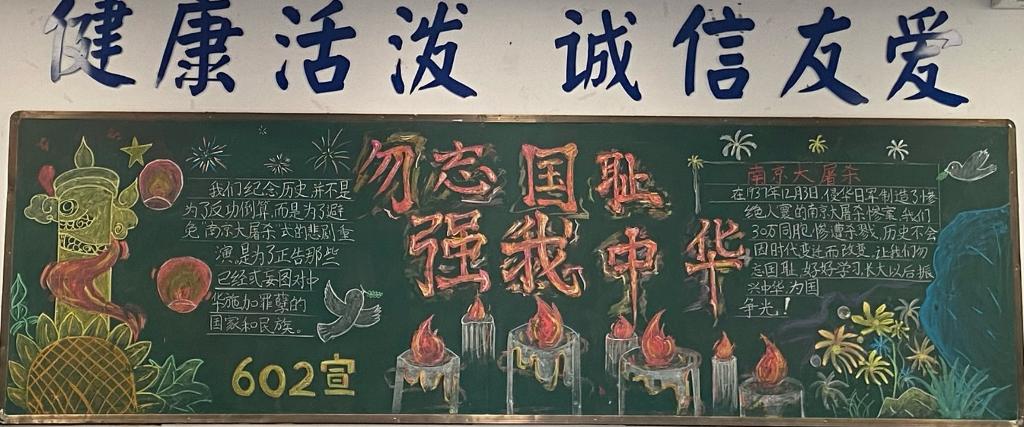 健康活泼 诚信友爱
勿忘国耻
强我中华
我们纪念历史并不是
为了反功倒算,而是为了避
免南京大屠杀式的悲剧重
演,是为了正告那些
已经或妄图对中
华施加罪孽的
国家和民族。
602宣
南京大屠杀
在1937年12月13日,侵华日军制造了惨
绝人寰的南京大屠杀惨案,我们
30万同胞惨遭杀戮,历史不会
因时代变迁而改变,让我们勿
忘国耻,好好学习,长大以后振
兴中华,为国
争光!